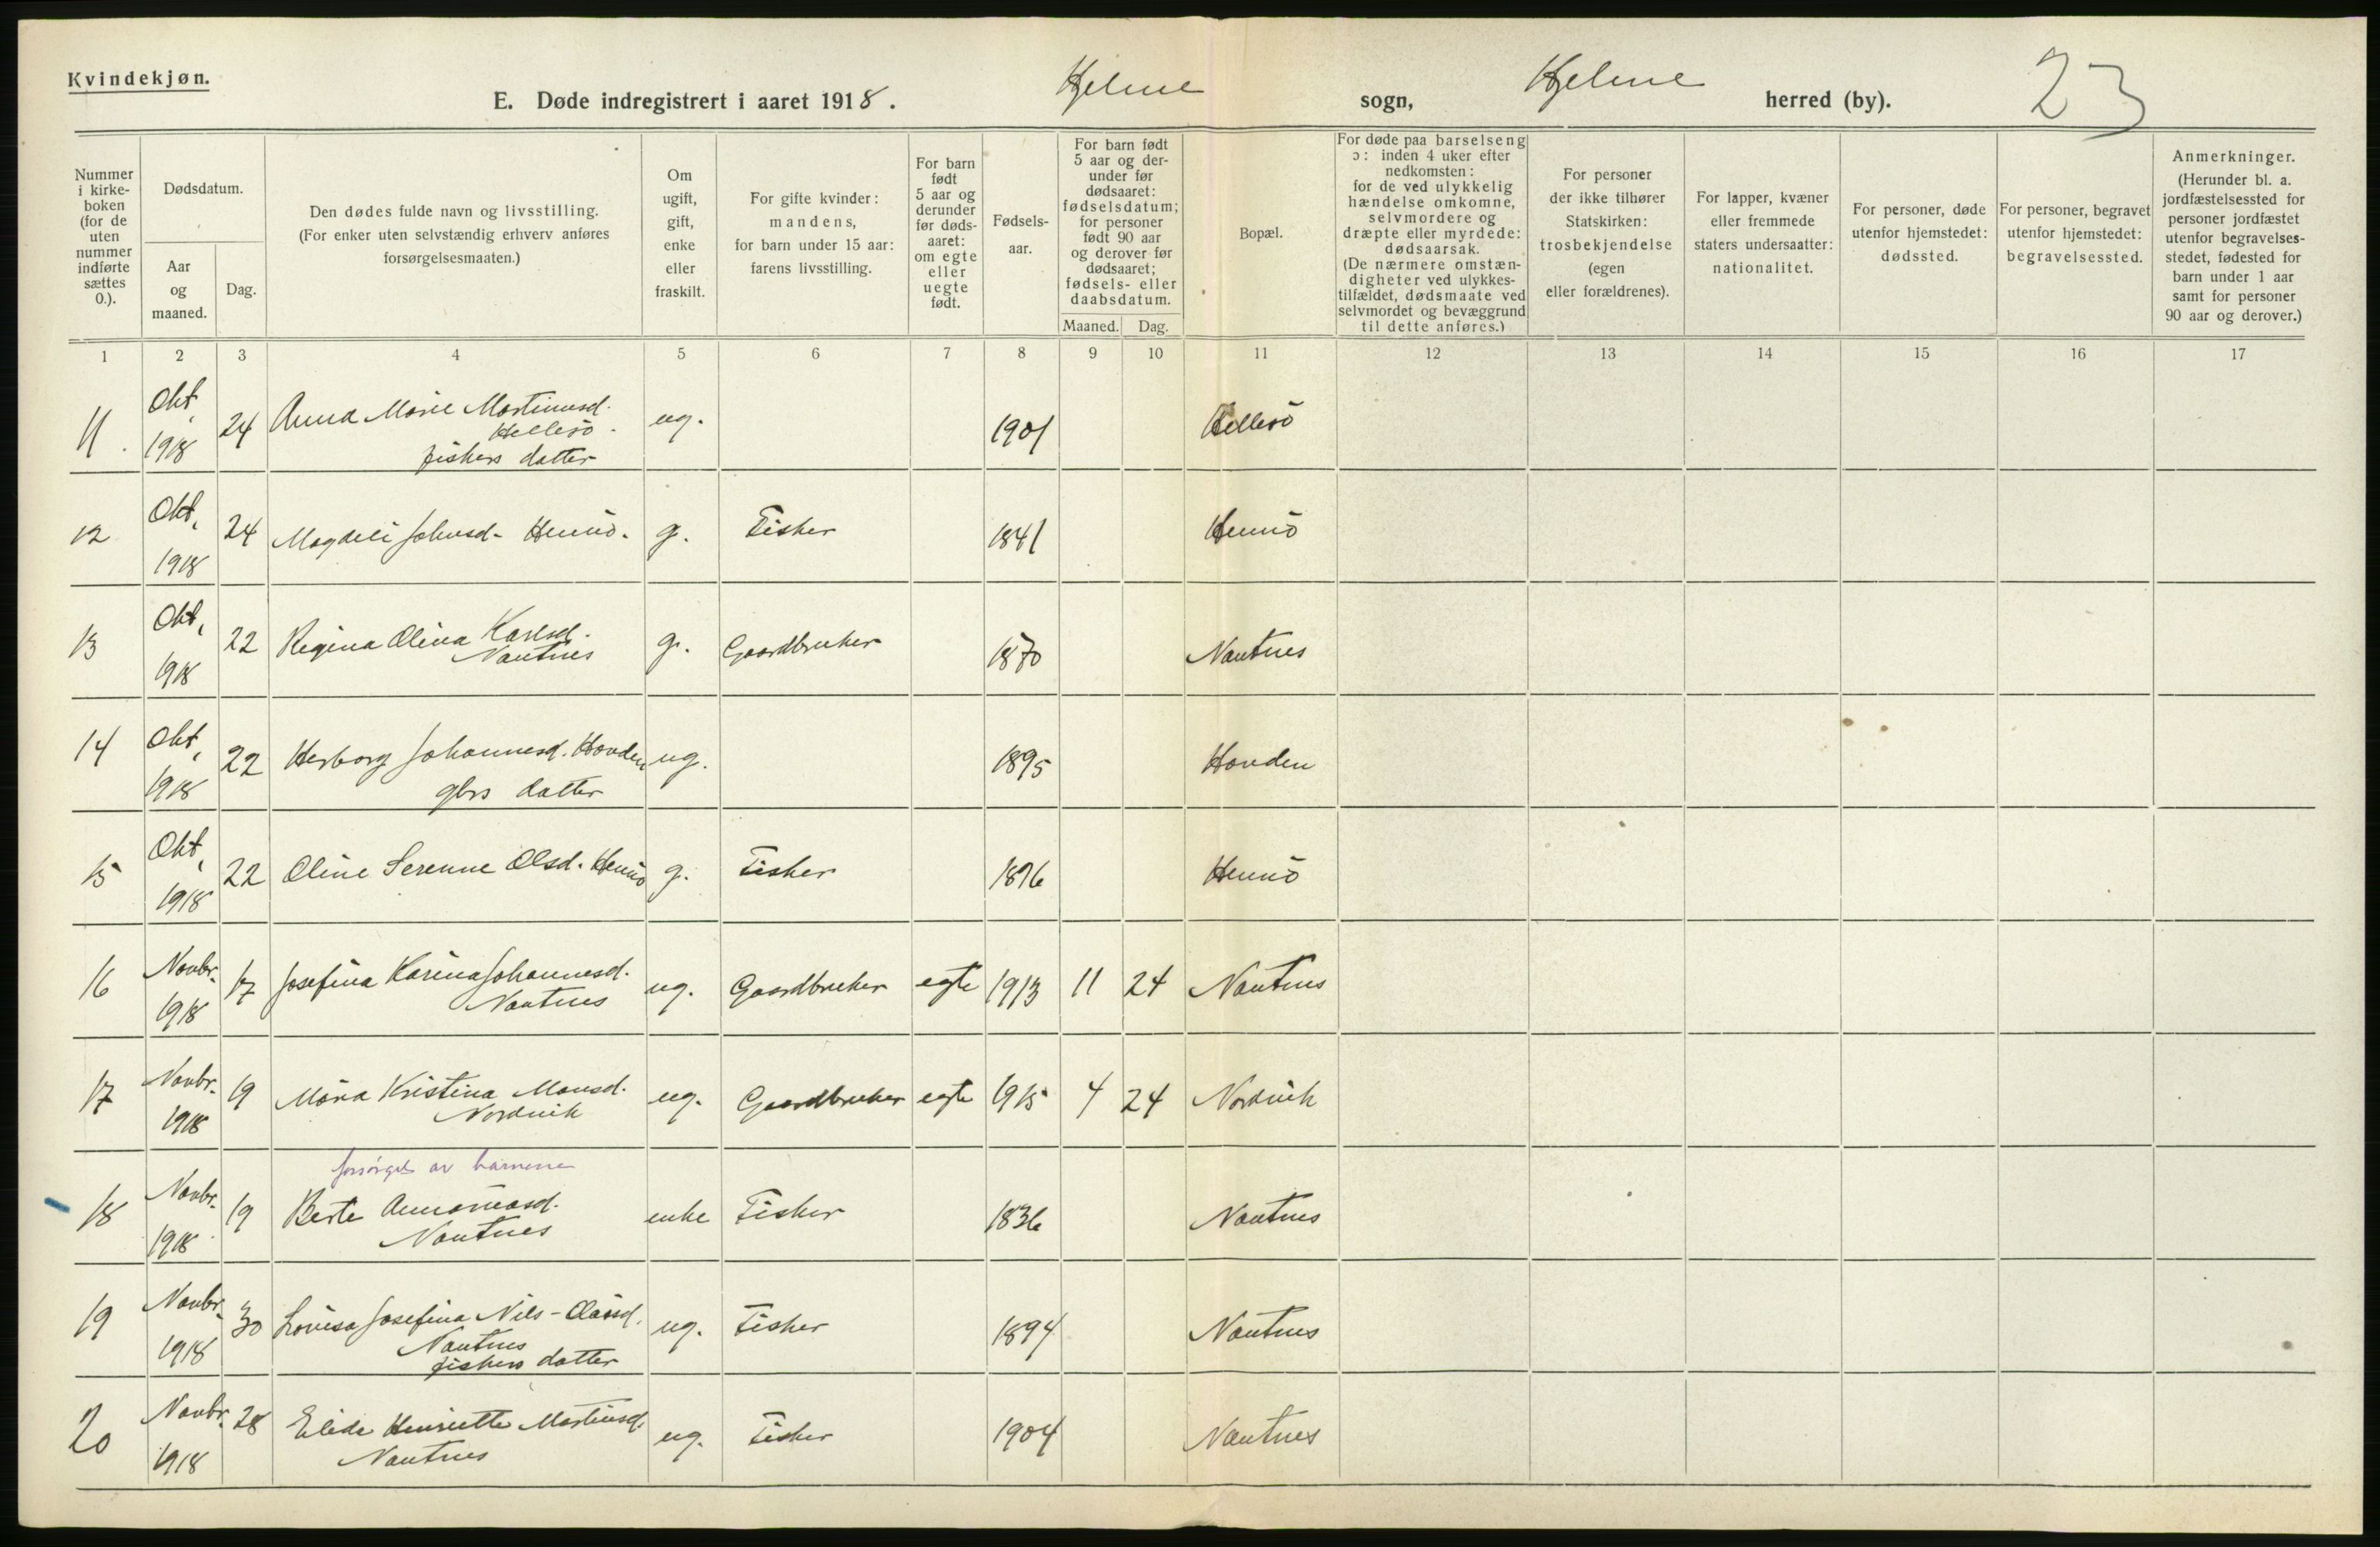 Kvindekjøn.
E. Døde indregistrert i aaret 1918. Hjelme sogn, Hjelme herred (by). 23
Nummer i kirkeboken (for de uten nummer indførte sættes 0.).
Dødsdatum.
Aar og maaned.
Dag.
Den dødes fulde navn og livsstilling.
(For enker uten selvstændig erhverv anføres forsørgelsesmaaten.)
Om ugift, gift, enke eller fraskilt.
For gifte kvinder: mandens, for barn under 15 aar: farens livsstilling.
For barn født 5 aar og derunder før dødsaaret: om egte eller uegte født.
Fødselsaar.
For barn født 5 aar og derunder før dødsaaret: fødselsdatum; for personer født 90 aar og derover før dødsaaret; fødsels- eller daabsdatum.
Maaned. Dag.
Bopæl.
For døde paa barselseng ɔ: inden 4 uker efter nedkomsten: for de ved ulykkelig hændelse omkomne, selvmordere og dræpte eller myrdede: dødsaarsak. (De nærmere omstændigheter ved ulykkestilfældet, dødsmaate ved selvmordet og bevæggrund til dette anføres.)
For personer der ikke tilhører Statskirken: trosbekjendelse (egen eller forældrenes).
For lapper, kvæner eller fremmede staters undersaatter: nationalitet.
For personer, døde utenfor hjemstedet: dødssted.
For personer, begravet utenfor hjemstedet: begravelsessted.
Anmerkninger. (Herunder bl. a. jordfæstelsessted for personer jordfæstet utenfor begravelsesstedet, fødested for barn under 1 aar samt for personer 90 aar og derover.)
1 2 3 4 5 6 7 8 9 10 11 12 13 14 15 16 17
11. Okt. 1918 24 Anna Marie Martinusd. Hellesö. fiskers datter ug. 1901 Hellesö
12 Okt. 1918 24 Magdeli Johnsd. Hennö. g. Fisker 1841 Hennö
13 Okt. 1918 22 Regina Olina Karlsd. Nautnes g. Gaardbruker 1870 Nautnes
14 Okt. 1918 22 Herborg Johannesd. Hovden gbrs datter ug. 1895 Hovden
15 Okt. 1918 22 Oline Serenne Olsd. Hennö g. Fisker 1876 Hennö
16 Novbr. 1918 17 Josefina Karina Johannesd. Nautnes ug. Gaardbruker egte 1913 11 24 Nautnes
17 Novbr. 1918 19 Maria Kristina Monsd. Nordvik ug. Gaardbruker egte 1915 4 24 Nordvik
forsörget av barnene
18 Novbr. 1918 19 Berte Nautnes enke Fisker 1836 Nautnes
19 Novbr. 1918 30 Lovisa Josefina Nils-Olaisd. Nautnes fiskers datter ug. Fisker 1894 Nautnes
20 Novbr. 1918 28 Elida Henriette Martinsd. Nautnes ug. Fisker 1904 Nautnes